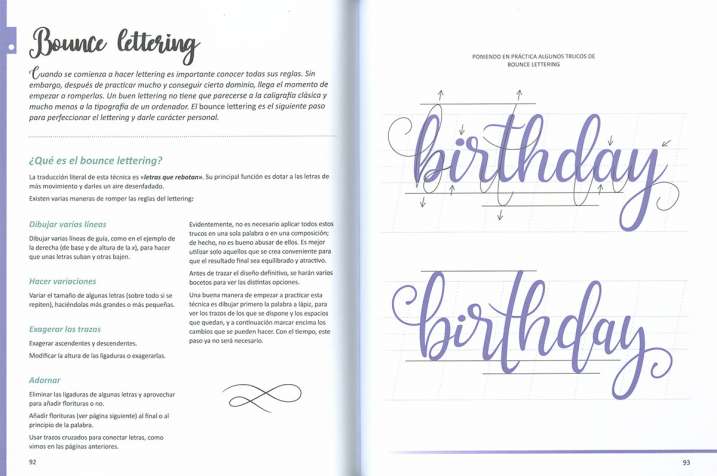 Bounce lettering
Cuando se comienza a hacer lettering es importante conocer todas sus reglas. Sin
embargo, después de practicar mucho y conseguir cierto dominio, llega el momento de
empezar a romperlas. Un buen lettering no tiene que parecerse a la caligrafía clásica y
mucho menos a la tipografía de un ordenador. El bounce lettering es el siguiente paso
para perfeccionar el lettering y darle carácter personal.
¿Qué es el bounce lettering?
La traducción literal de esta técnica es «letras que rebotan». Su principal función es dotar a las letras de
más movimiento y darles un aire desenfadado.
Existen varias maneras de romper las reglas del lettering:
Dibujar varias líneas
Dibujar varias líneas de guía, como en el ejemplo de
la derecha (de base y de altura de la x), para hacer
que unas letras suban y otras bajen.
Hacer variaciones
Variar el tamaño de algunas letras (sobre todo si se
repiten), haciéndolas más grandes o más pequeñas.
Exagerar los trazos
Exagerar ascendentes y descendentes.
Modificar la altura de las ligaduras o exagerarlas.
Adornar
Eliminar las ligaduras de algunas letras y aprovechar
para añadir florituras o no.
Añadir florituras (ver página siguiente) al final o al
principio de la palabra.
Usar trazos cruzados para conectar letras, como
vimos en las páginas anteriores.
Evidentemente, no es necesario aplicar todos estos
trucos en una sola palabra o en una composición;
de hecho, no es bueno abusar de ellos. Es mejor
utilizar solo aquellos que se crea conveniente para
que el resultado final sea equilibrado y atractivo.
Antes de trazar el diseño definitivo, se harán varios
bocetos para ver las distintas opciones.
Una buena manera de empezar a practicar esta
técnica es dibujar primero la palabra a lápiz, para
ver los trazos de los que se dispone y los espacios
que quedan, y a continuación marcar encima los
cambios que se pueden hacer. Con el tiempo, este
paso ya no será necesario.
92
PONIENDO EN PRÁCTICA ALGUNOS TRUCOS DE
BOUNCE LETTERING
birthday
birthday
93